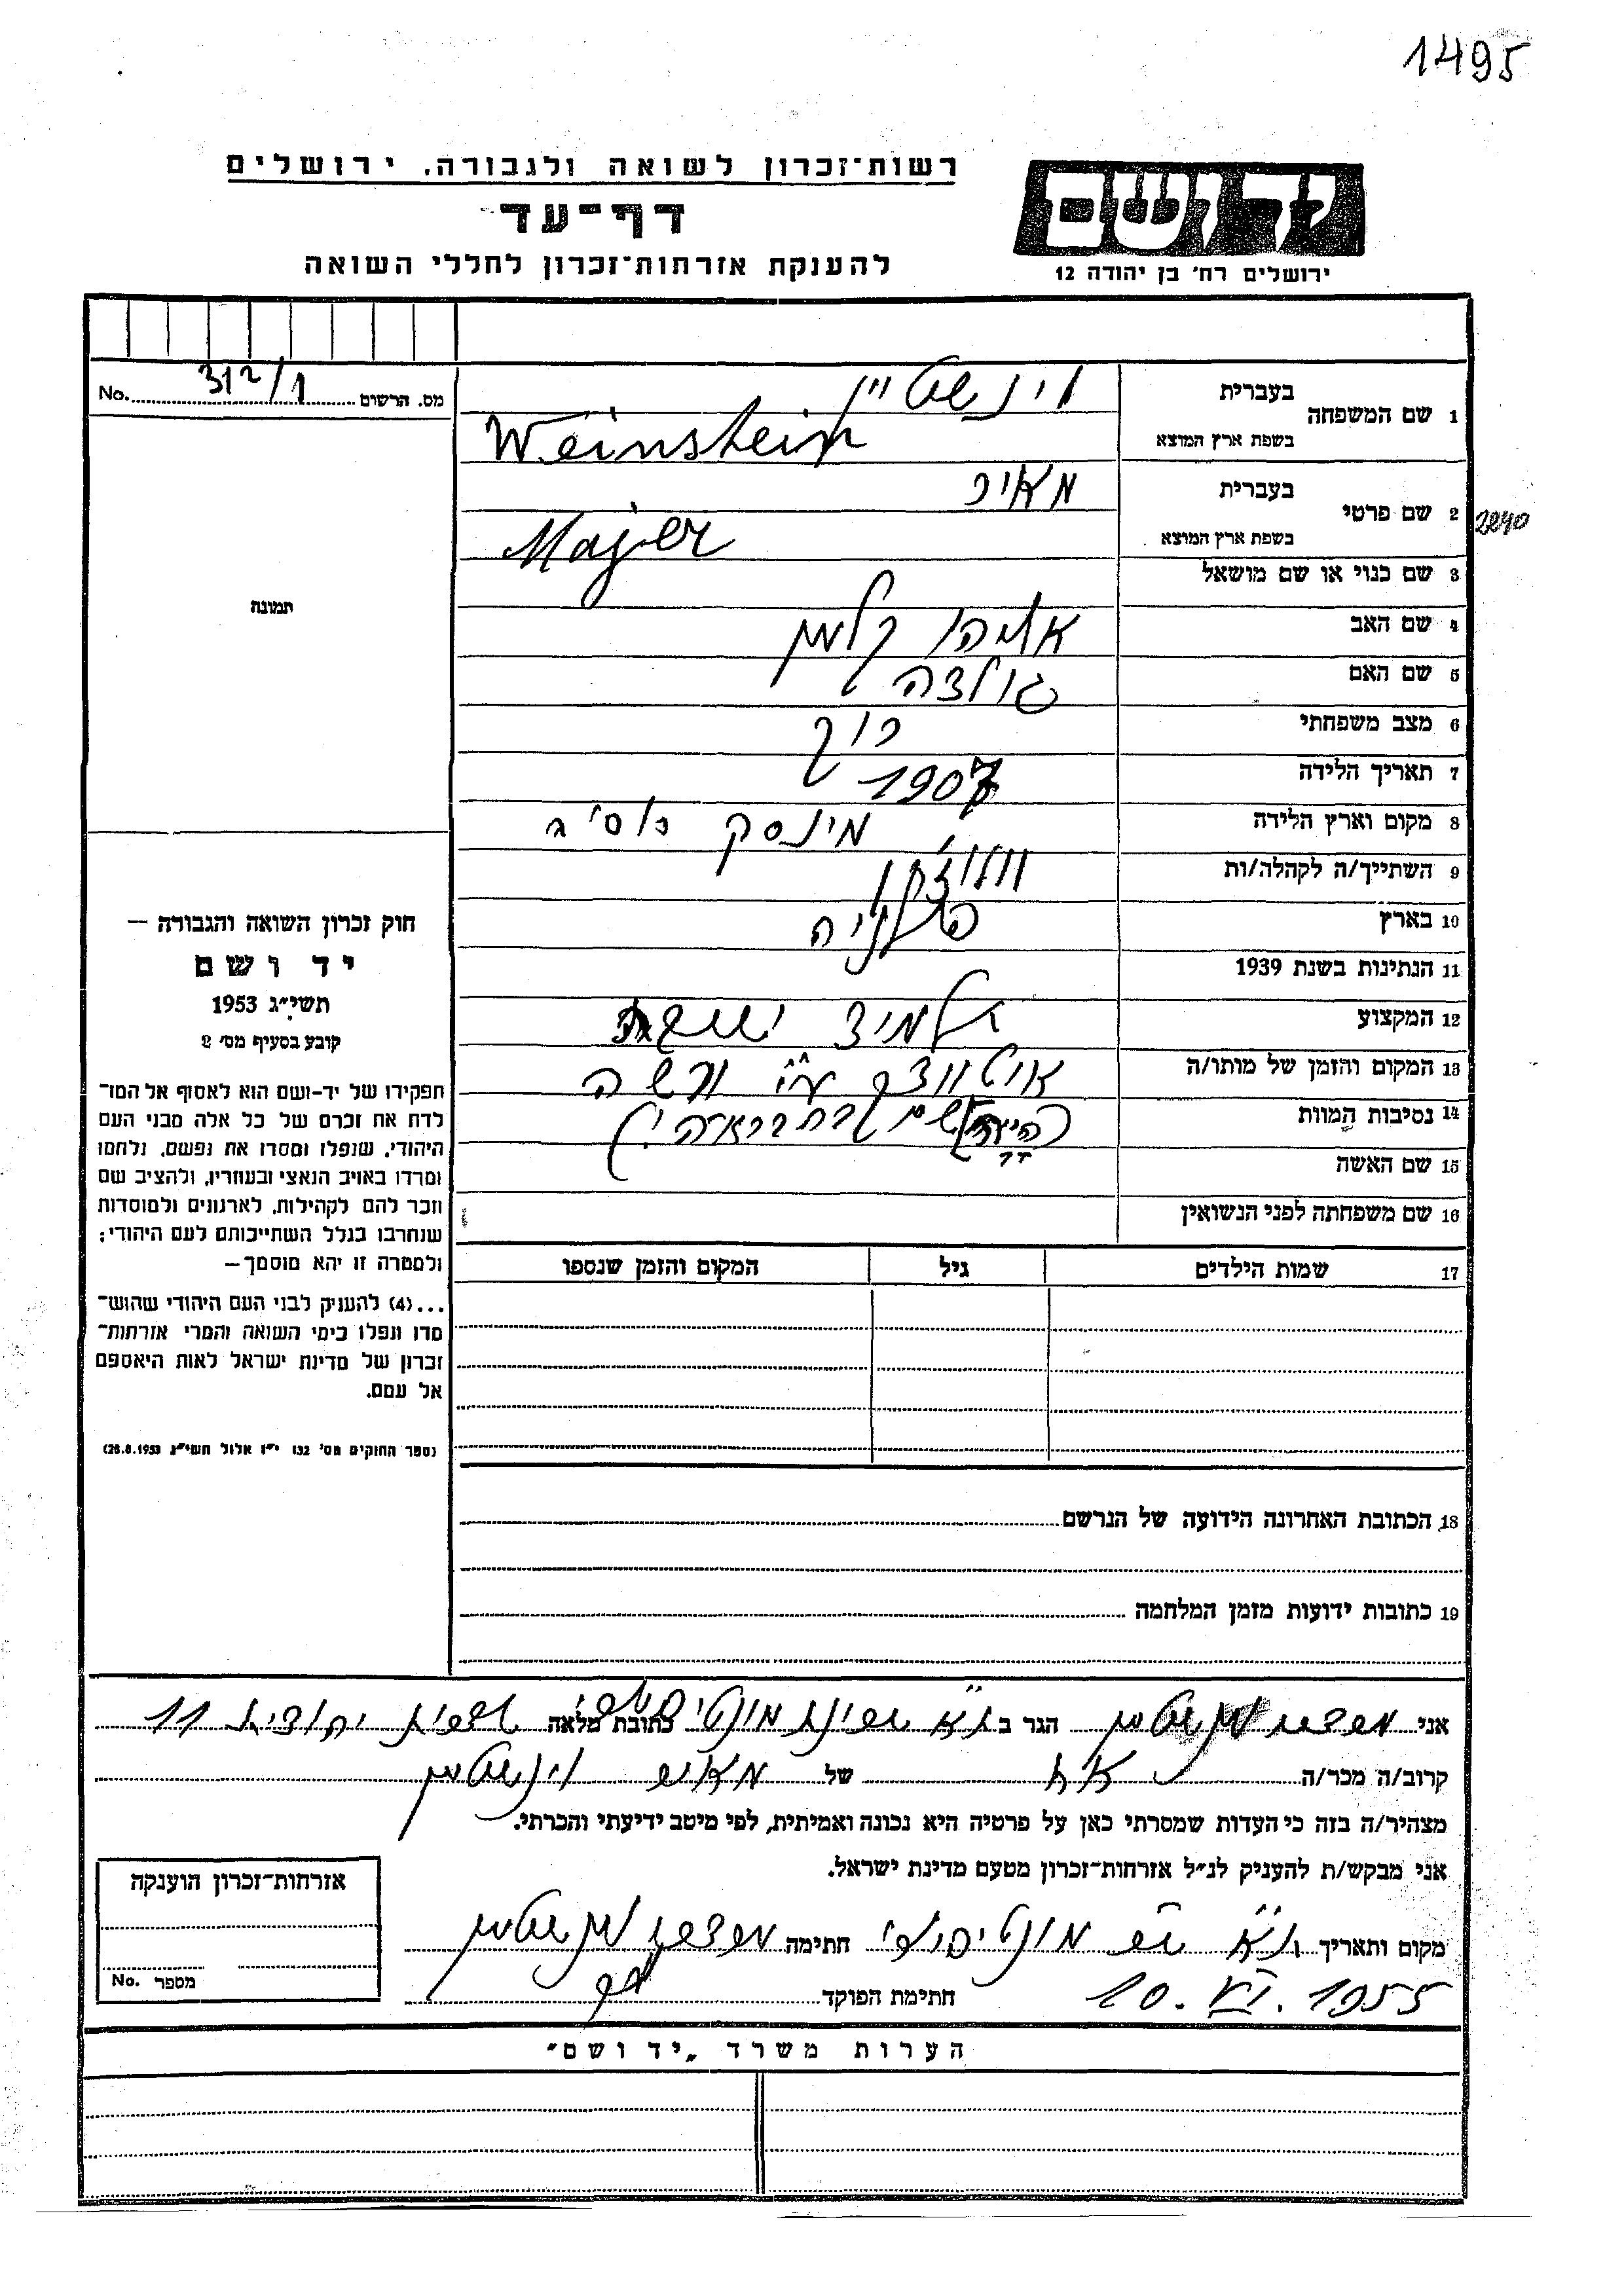 1495
רשות־זכרון לשואה ולגבורה, ירושלים
דף־עד
להענקת אזרחות־זכרון לחללי השואה
יד ושם
ירושלים רח' בן יהודה 12
מס. הרשום 312/1 No.
1 שם המשפחה
בעברית וינשטיין
בשפת ארץ המוצא Weinstein
2 שם פרטי
בעברית מאיר
בשפת ארץ המוצא Majer
2840
3 שם כנוי או שם מושאל
4 שם האב אליהו קלמן
5 שם האם גולדה
6 מצב משפחתי רוק
7 תאריך הלידה 1907
8 מקום וארץ הלידה מינסק
9 השתייך/ה לקהלה/ות וולוז'ין
10 בארץ פולניה
11 הנתינות בשנת 1939
12 המקצוע תלמיד ישיבה
13 המקום והזמן של מותו/ה אוטווצק ע"י ורשה
14 נסיבות המוות
15 שם האשה
16 שם משפחתה לפני הנשואין
17 שמות הילדים גיל המקום והזמן שנספו
18 הכתובת האחרונה הידועה של הנרשם
19 כתובות ידועות מזמן המלחמה
תמונה
חוק זכרון השואה והגבורה —
יד ושם
תשי"ג 1953
קובע בסעיף מס' 2
תפקידו של יד־ושם הוא לאסוף אל המו־
לדת את זכרם של כל אלה מבני העם
היהודי, שנפלו ומסרו את נפשם, נלחמו
ומרדו באויב הנאצי ובעוזריו, ולהציב שם
וזכר להם לקהילות, לארגונים ולמוסדות
שנחרבו בגלל השתייכותם לעם היהודי;
ולמטרה זו יהא מוסמך —
...(4) להעניק לבני העם היהודי שהוש־
מדו ונפלו בימי השואה והמרי אזרחות־
זכרון של מדינת ישראל לאות היאספם
אל עמם.
(ספר החוקים מס' 132 י"ז אלול תשי"ג 28.8.1953)
אני וינשטיין הגר ב ת"א שכונת מונטיפיורי כתובת מלאה יהודית 11
קרוב/ה מכר/ה אח של מאיר וינשטיין
מצהיר/ה בזה כי העדות שמסרתי כאן על פרטיה היא נכונה ואמיתית, לפי מיטב ידיעתי והכרתי.
אני מבקש/ת להעניק לנ"ל אזרחות־זכרון מטעם מדינת ישראל.
מקום ותאריך ת"א שכ' מונטיפיורי חתימה וינשטיין
10. VI. 1955 חתימת הפוקד
אזרחות־זכרון הוענקה
מספר No.
הערות משרד „יד ושם"